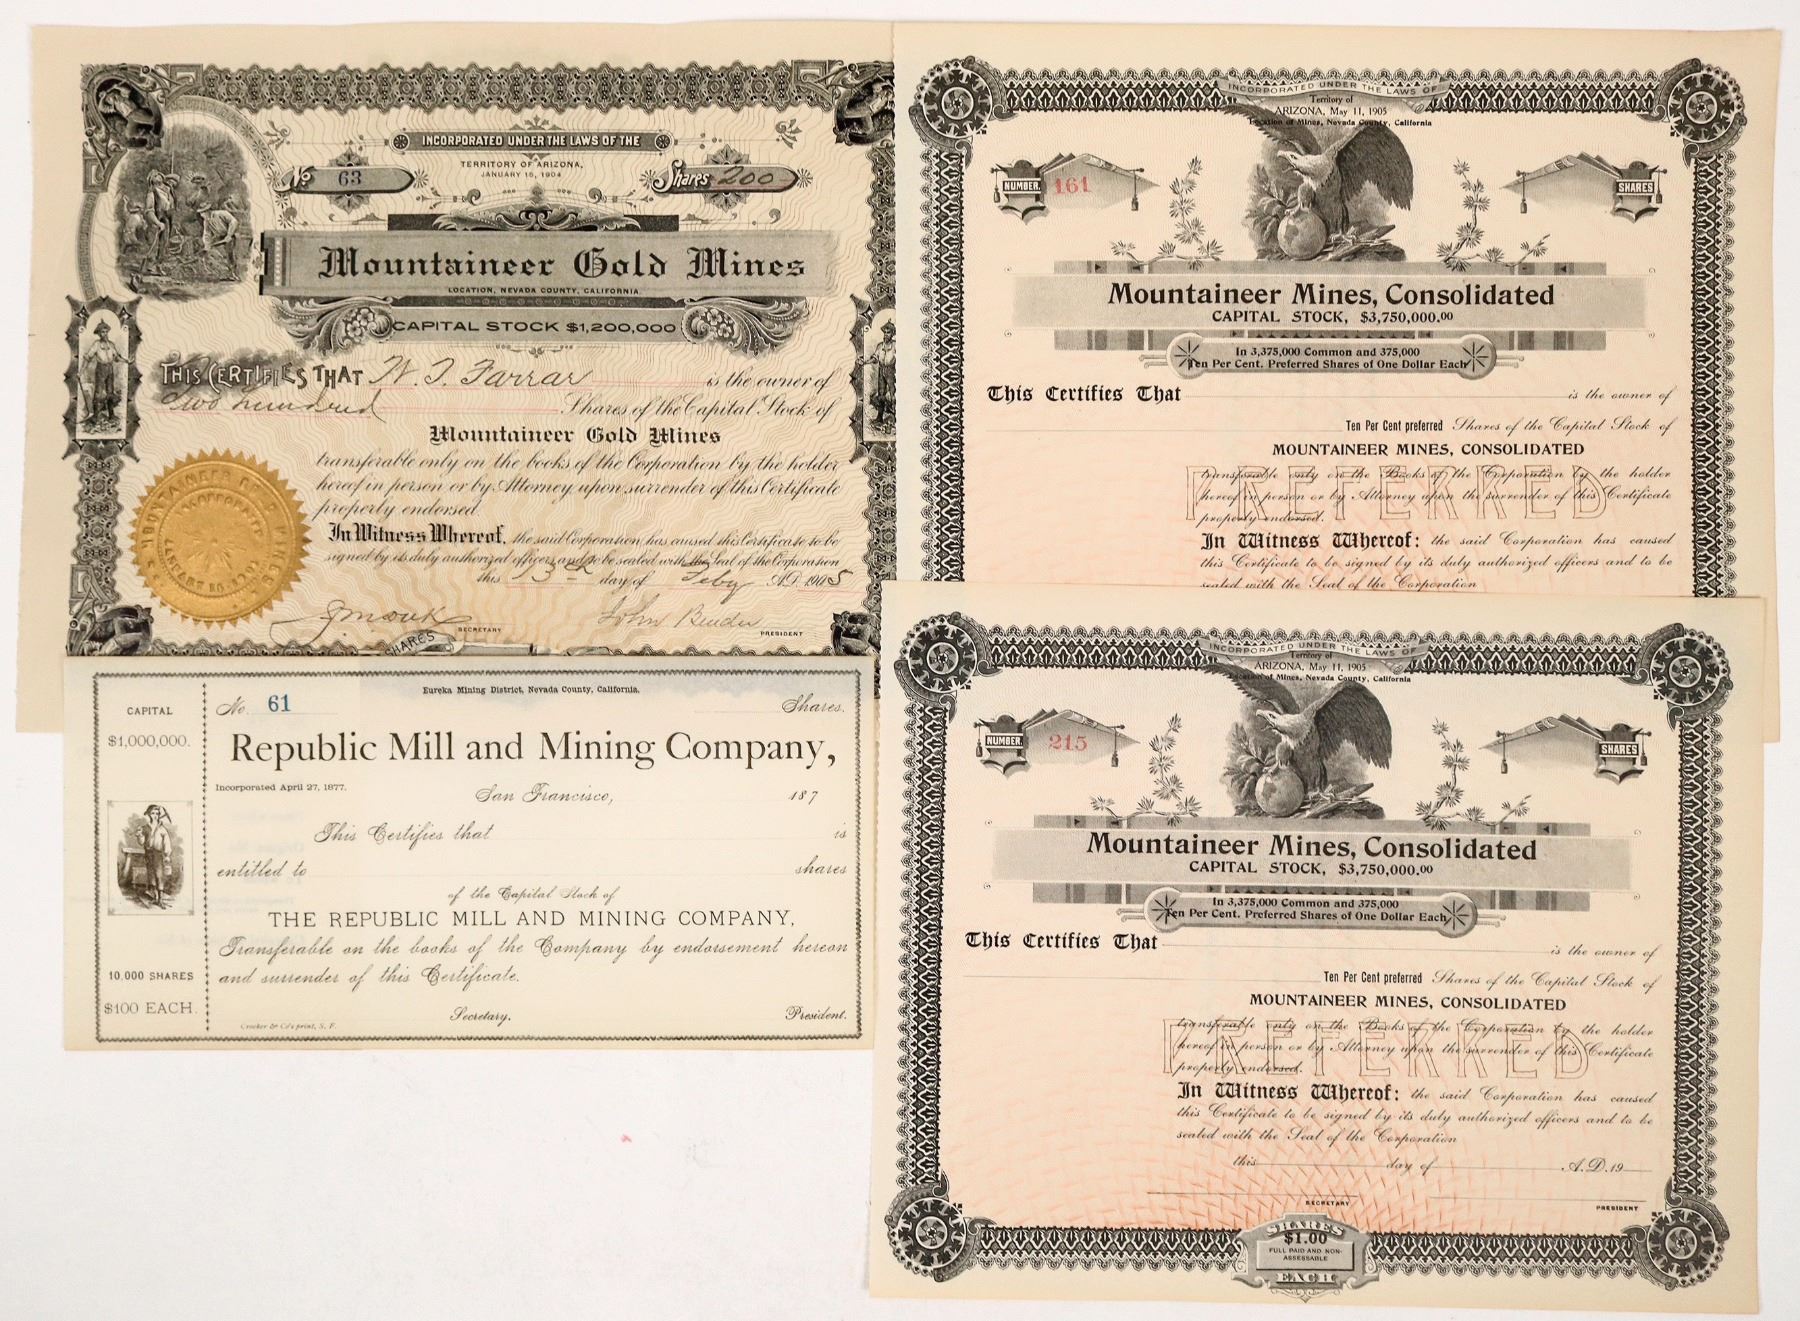 INCORPORATED UNDER THE LAWS OF THE
TERRITORY OF ARIZONA,
JANUARY 15, 1904
No 63
Shares 200
Mountaineer Gold Mines
LOCATION, NEVADA COUNTY, CALIFORNIA
CAPITAL STOCK $1,200,000
THIS CERTIFIES THAT W. T. Farrar is the owner of
two hundred Shares of the Capital Stock of
Mountaineer Gold Mines
transferable only on the books of the Corporation by the holder
hereof in person or by Attorney upon surrender of this Certificate
properly endorsed.
In Witness Whereof, the said Corporation has caused this Certificate to be
signed by its duly authorized officers and to be sealed with the Seal of the Corporation
this 13th day of Feby A.D. 1905
John Bender
SECRETARY
PRESIDENT
SHARES
MOUNTAINEER GOLD MINES
Eureka Mining District, Nevada County, California.
CAPITAL
$1,000,000.
No. 61
Shares.
Republic Mill and Mining Company,
Incorporated April 27, 1877.
San Francisco, 187
This Certifies that is
entitled to shares
of the Capital Stock of
THE REPUBLIC MILL AND MINING COMPANY,
Transferable on the books of the Company by endorsement hereon
and surrender of this Certificate.
10,000 SHARES
$100 EACH.
Secretary.
President.
Crocker & Co's print, S. F.
INCORPORATED UNDER THE LAWS OF
Territory of
ARIZONA, May 11, 1905
Location of Mines, Nevada County, California
NUMBER. 161
SHARES
Mountaineer Mines, Consolidated
CAPITAL STOCK, $3,750,000.00
In 3,375,000 Common and 375,000
Ten Per Cent. Preferred Shares of One Dollar Each
This Certifies That is the owner of
Ten Per Cent preferred Shares of the Capital Stock of
MOUNTAINEER MINES, CONSOLIDATED
PREFERRED
transferable only on the Books of the Corporation by the holder
hereof in person or by Attorney upon the surrender of this Certificate
properly endorsed.
In Witness Whereof: the said Corporation has caused
this Certificate to be signed by its duly authorized officers and to be
sealed with the Seal of the Corporation
INCORPORATED UNDER THE LAWS OF
Territory of
ARIZONA, May 11, 1905
Location of Mines, Nevada County, California
NUMBER. 215
SHARES
Mountaineer Mines, Consolidated
CAPITAL STOCK, $3,750,000.00
In 3,375,000 Common and 375,000
Ten Per Cent. Preferred Shares of One Dollar Each
This Certifies That is the owner of
Ten Per Cent preferred Shares of the Capital Stock of
MOUNTAINEER MINES, CONSOLIDATED
PREFERRED
transferable only on the Books of the Corporation by the holder
hereof in person or by Attorney upon the surrender of this Certificate
properly endorsed.
In Witness Whereof: the said Corporation has caused
this Certificate to be signed by its duly authorized officers and to be
sealed with the Seal of the Corporation
this day of A.D. 19
SECRETARY
PRESIDENT
SHARES
$1.00
FULL PAID AND NON-
ASSESSABLE
EACH